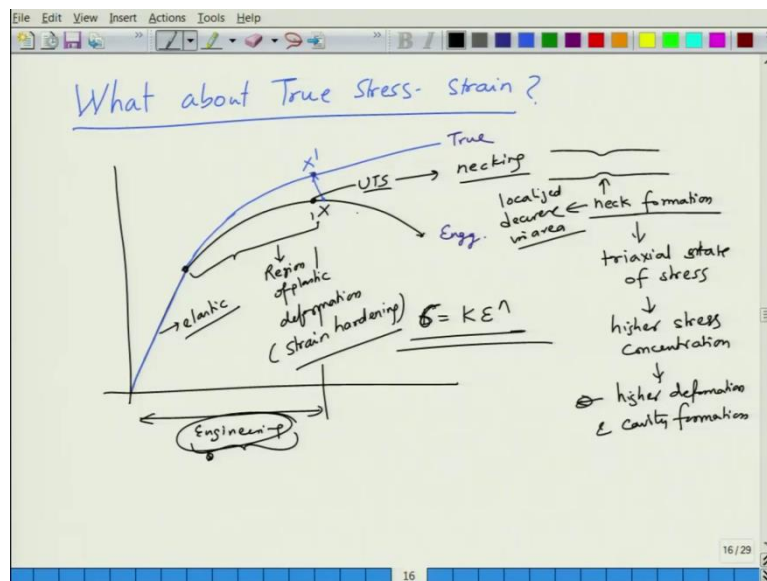 File Edit View Insert Actions Tools Help
B I
What about True Stress- Strain?
True
X'
UTS
necking
X
Engg.
localized
decrease
in area
neck formation
triaxial state
of stress
higher stress
concentration
higher deformation
& cavity formation
elastic
Region
of plastic
deformation
(strain hardening)
σ = K ε^n
Engineering
16/29
16